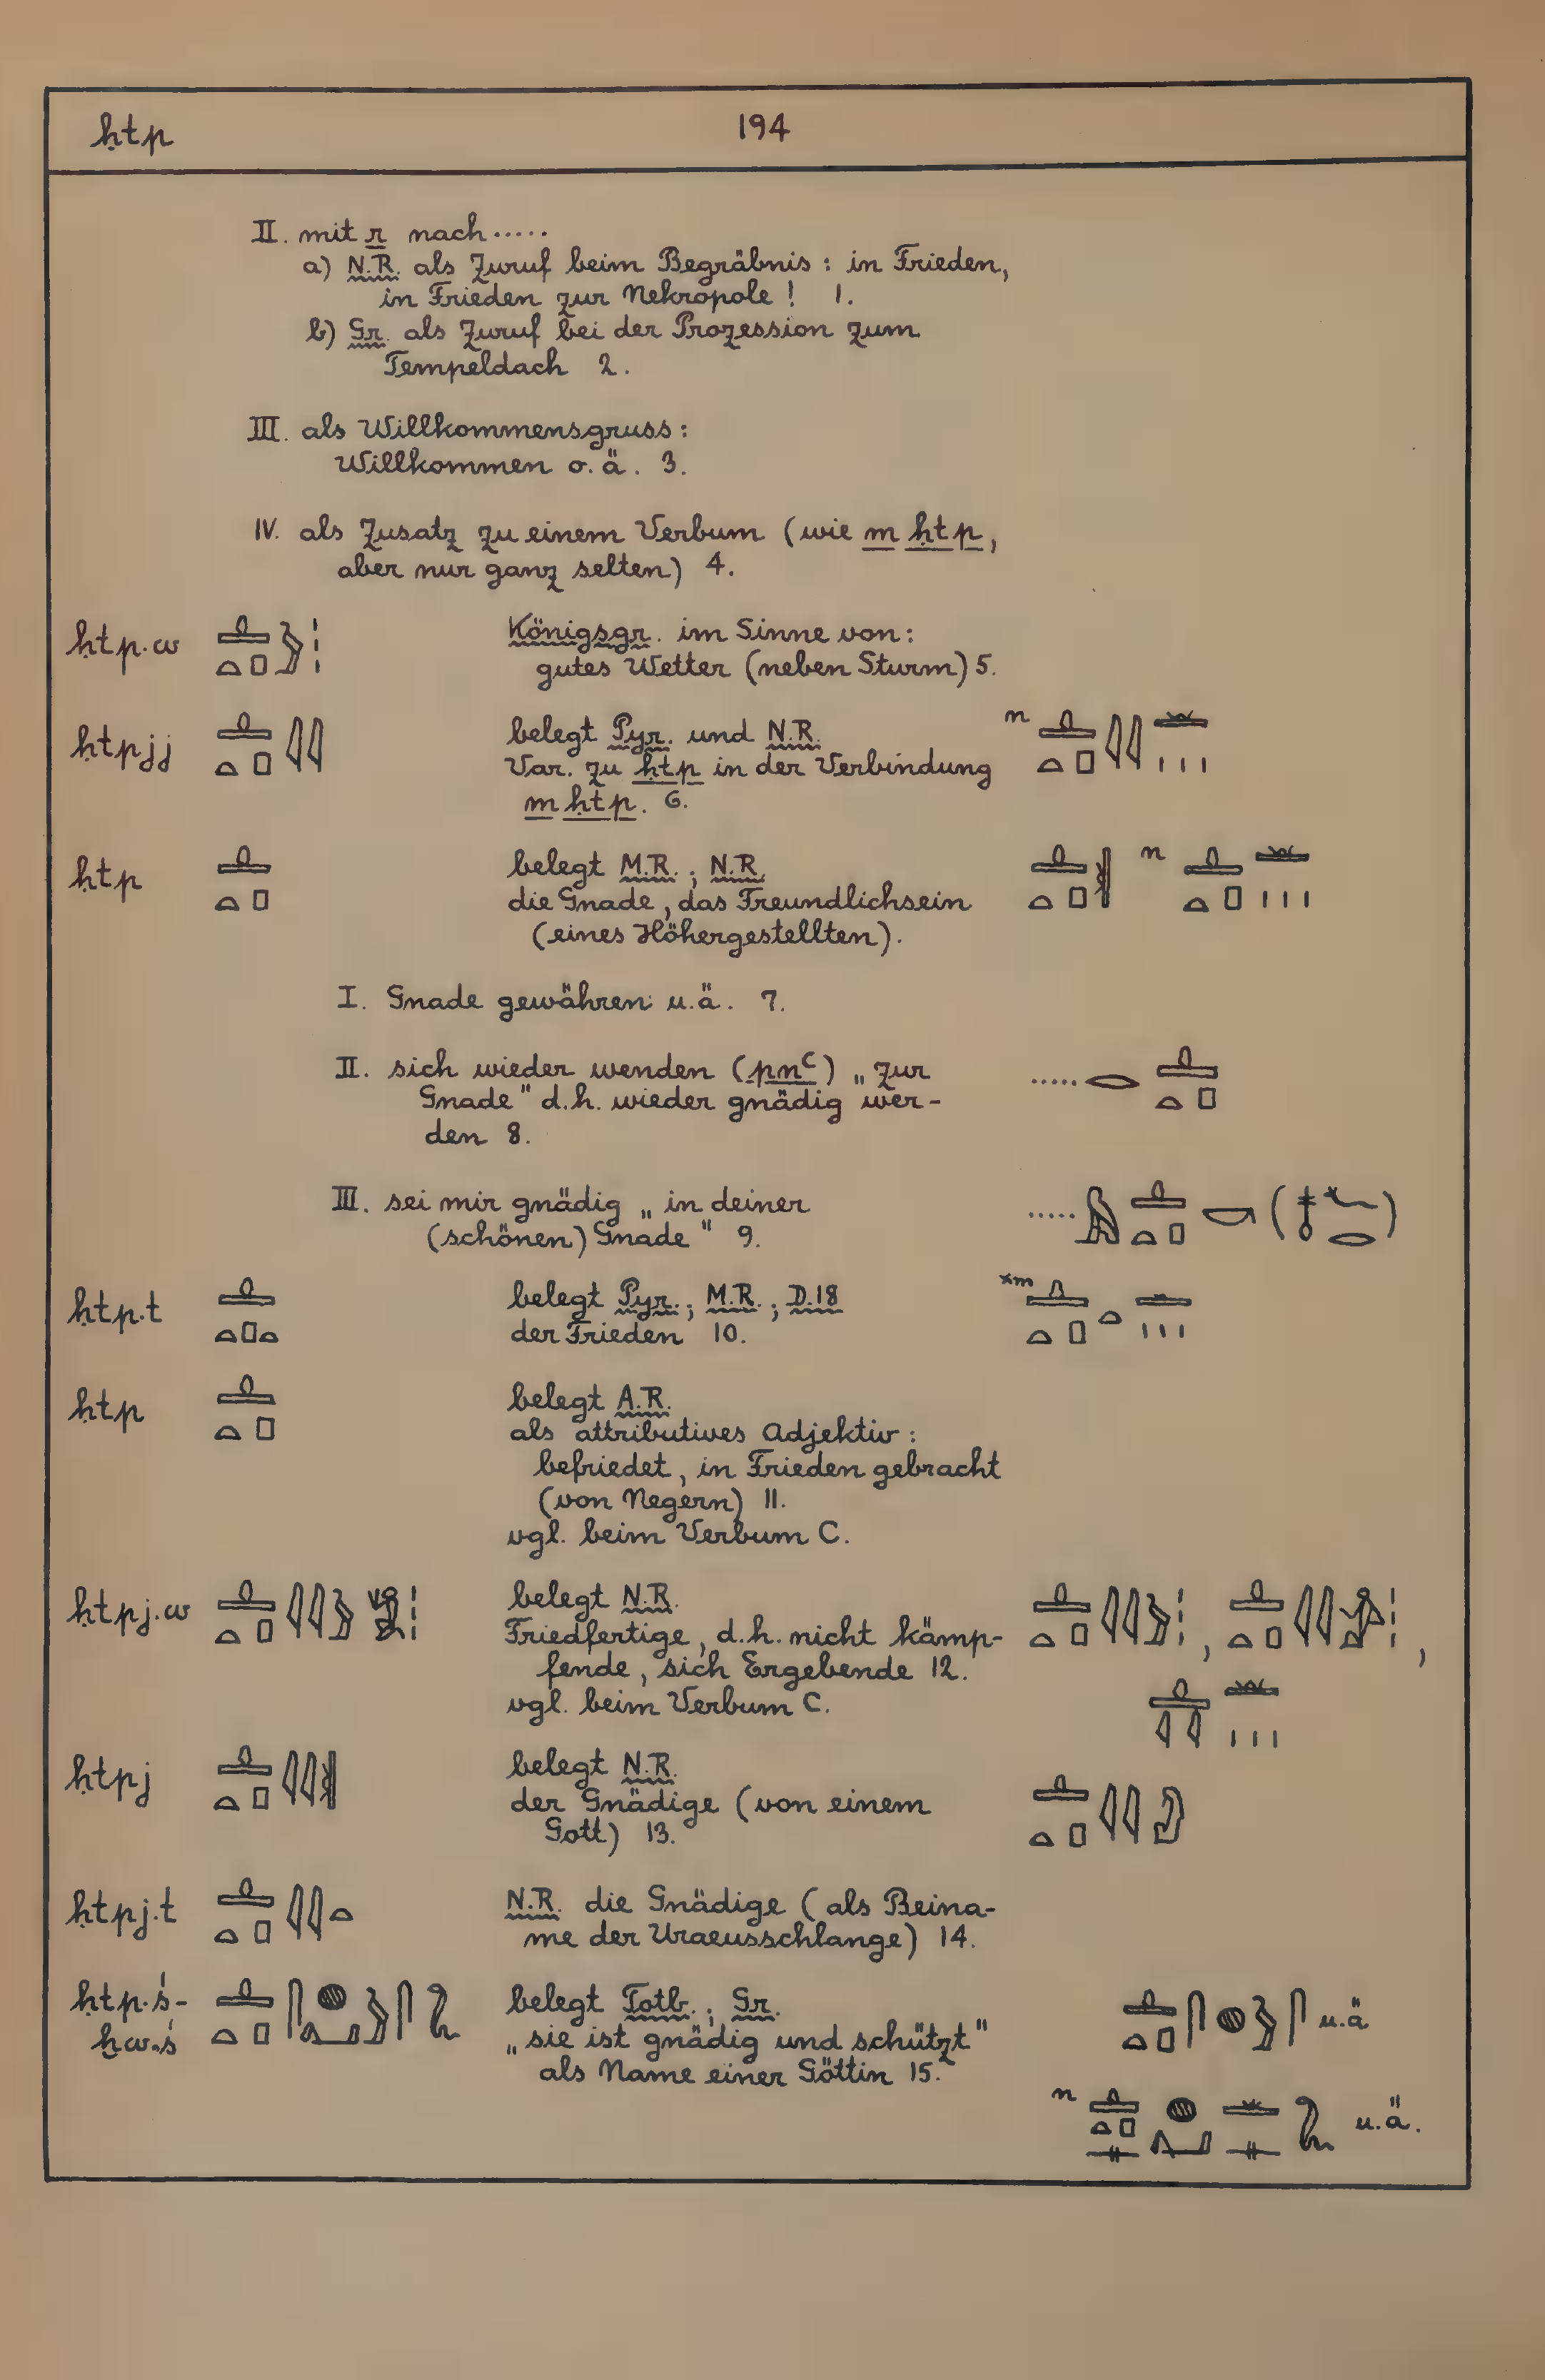 ḥtp 194
II. mit r nach.....
a) N.R. als Zuruf beim Begräbnis: in Frieden,
in Frieden zur Nekropole! 1.
b) Gr. als Zuruf bei der Prozession zum
Tempeldach 2.
III. als Willkommensgruss:
Willkommen o.ä. 3.
IV. als Zusatz zu einem Verbum (wie m ḥtp,
aber nur ganz selten) 4.
ḥtp.w Königsgr. im Sinne von:
gutes Wetter (neben Sturm) 5.
ḥtpjj belegt Pyr. und N.R. n
Var. zu ḥtp in der Verbindung
m ḥtp. 6.
ḥtp belegt M.R.; N.R. n
die Gnade, das Freundlichsein
(eines Höhergestellten).
I. Gnade gewähren u.ä. 7.
II. sich wieder wenden (pnꜥ) „zur .....
Gnade" d.h. wieder gnädig wer-
den 8.
III. sei mir gnädig „in deiner ..... ( )
(schönen) Gnade" 9.
ḥtp.t belegt Pyr.; M.R.; D.18
der Frieden 10.
ḥtp belegt A.R.
als attributives Adjektiv:
befriedet, in Frieden gebracht
(von Negern) 11.
vgl. beim Verbum C.
ḥtpj.w belegt N.R.
Friedfertige, d.h. nicht kämp-
fende, sich Ergebende 12.
vgl. beim Verbum C.
ḥtpj belegt N.R.
der Gnädige (von einem
Gott) 13.
ḥtpj.t N.R. die Gnädige (als Beina-
me der Uraeusschlange) 14.
ḥtp.ś- belegt Totb.; Gr. u.ä
ḫw.ś „sie ist gnädig und schützt"
als Name einer Göttin 15.
n u.ä.